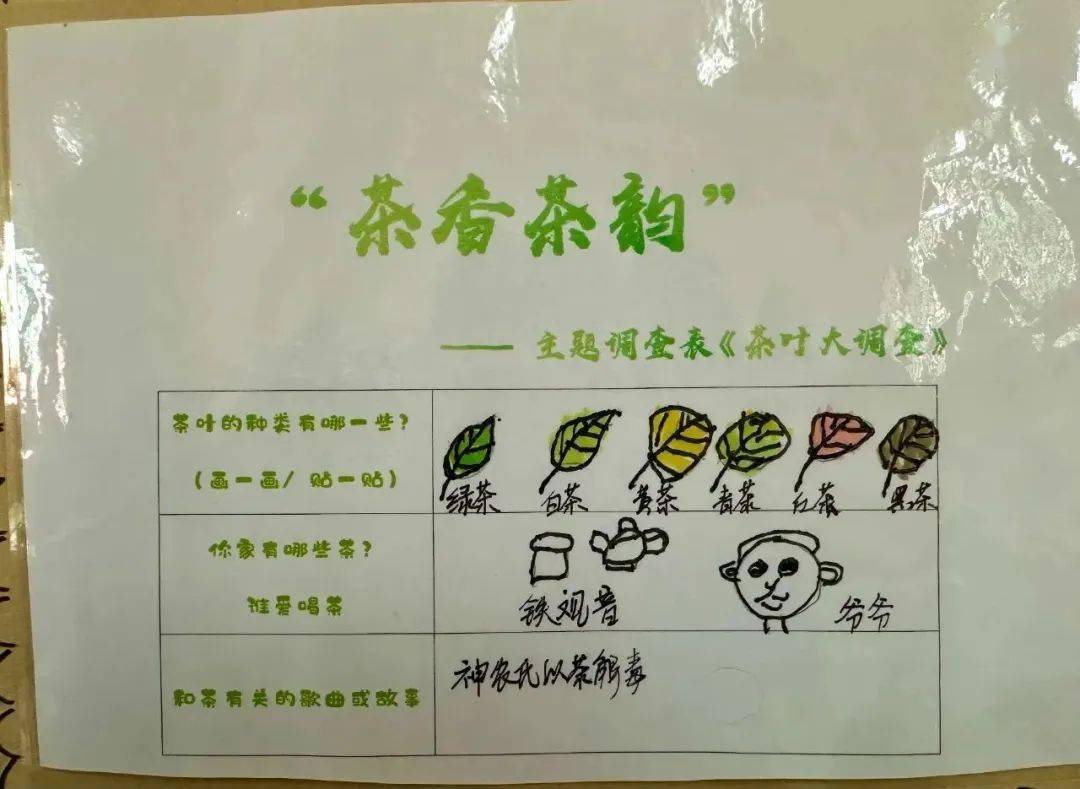 “茶香茶韵”
—— 主题调查表《茶叶大调查》
茶叶的种类有哪一些？
（画一画/ 贴一贴）
绿茶 白茶 黄茶 青茶 红茶 黑茶
你家有哪些茶？
谁爱喝茶
铁观音 爷爷
和茶有关的歌曲或故事
神农氏以茶解毒